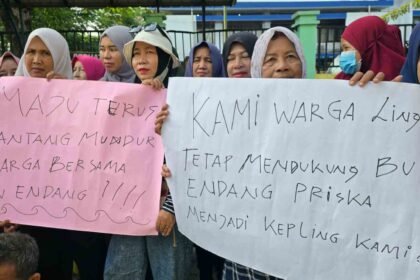 MAJU TERUS
PANTANG MUNDUR
WARGA BERSAMA
ENDANG !!!!
KAMI WARGA LING
TETAP MENDUKUNG BU
ENDANG PRISKA
MENJADI KEPLING KAMI